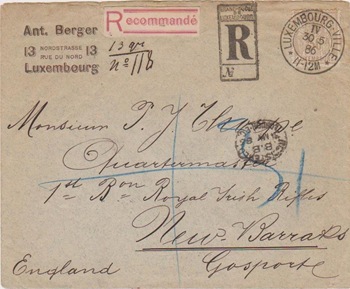 Ant. Berger
13 NORDSTRASSE 13
RUE DU NORD
Luxembourg
Recommandé
13 gr
No 116
R
No
LUXEMBOURG-VILLE
IV
30 5
86
11-12M
Monsieur P. J. Thorpe
Quartermaster
1st Bon Royal Irish Rifles
New Barraks
Gosport
England